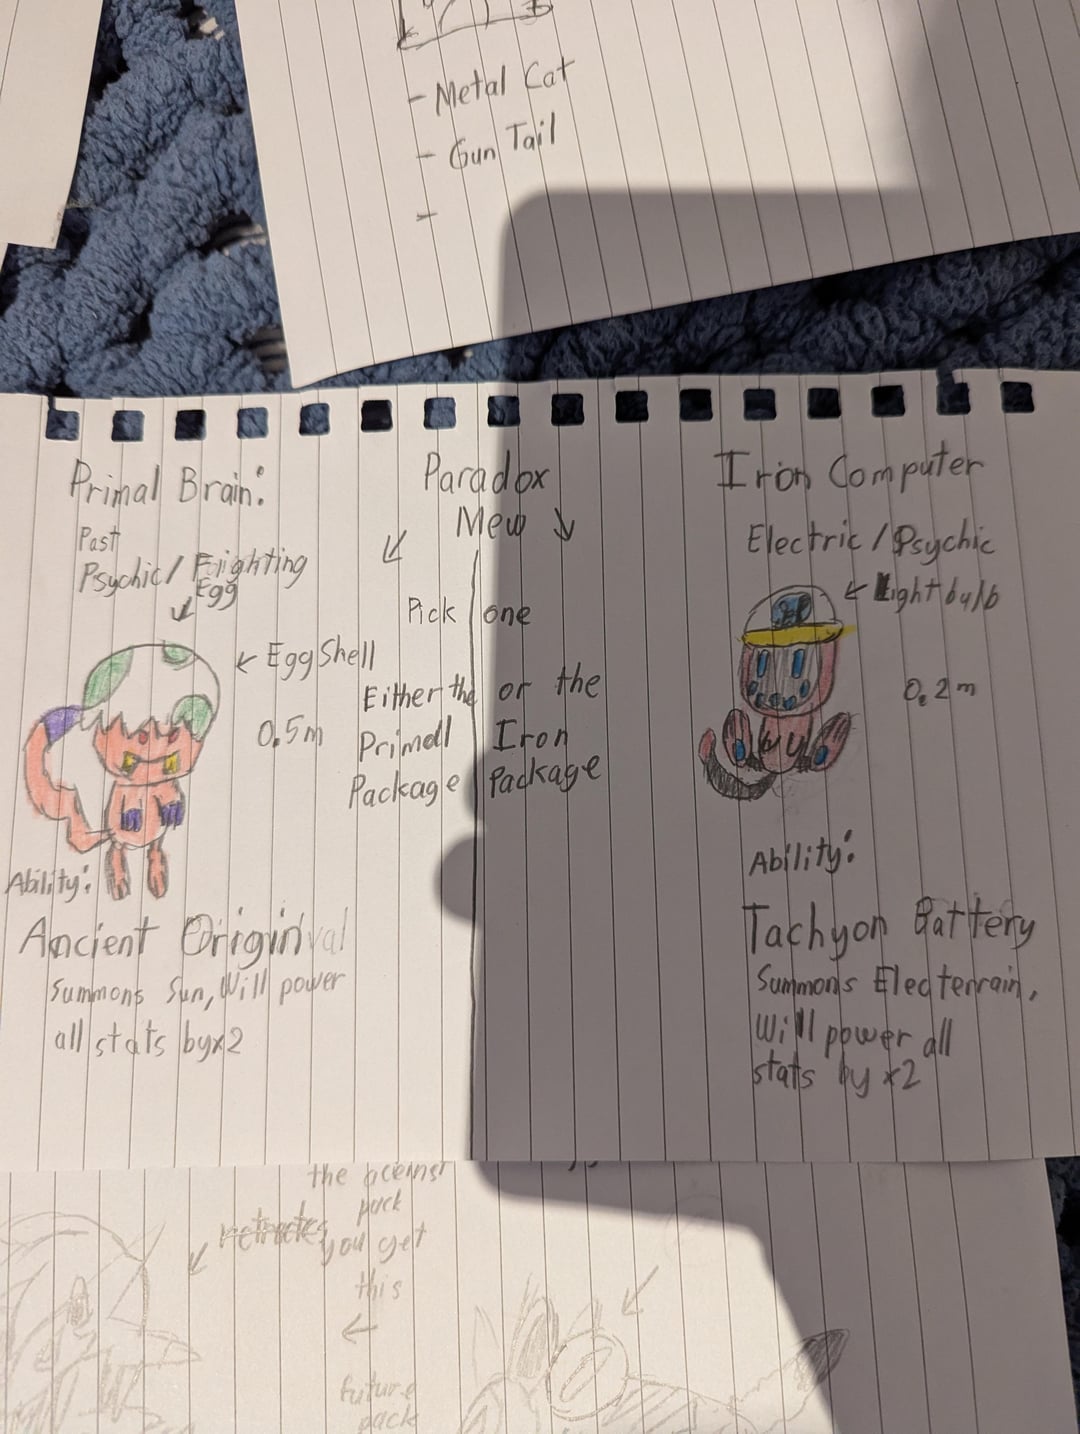 - Metal Cat
- Gun Tail
-
Primal Brain:
Past
Psychic/ Frighting
Egg
Egg Shell
0.5m
Ability:
Ancient Originval
Summons Sun, Will power
all stats by x2
Paradox
Mew
Pick one
Either the or the
Primall Iron
Package Package
Iron Computer
Electric / Psychic
Light bulb
0.2m
Ability:
Tachyon Battery
Summons Electerrain,
Will power all
stats by x2
the
pack
you get
this
future
pack